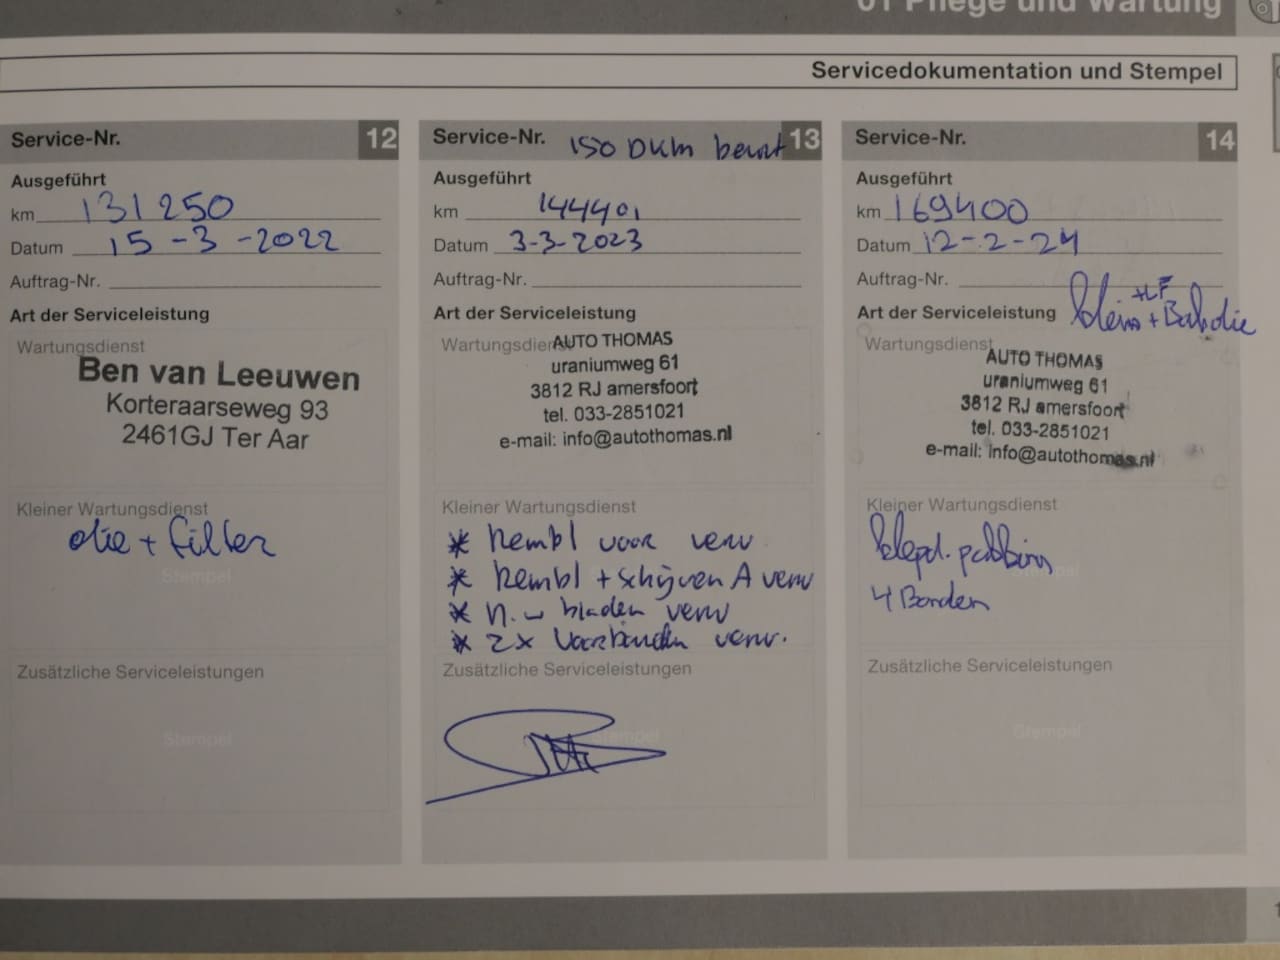 01 Pflege und Wartung
Servicedokumentation und Stempel
Service-Nr. 12
Ausgeführt
km 131250
Datum 15-3-2022
Auftrag-Nr.
Art der Serviceleistung
Wartungsdienst
Ben van Leeuwen
Korteraarseweg 93
2461GJ Ter Aar
Kleiner Wartungsdienst
olie + filter
Stempel
Zusätzliche Serviceleistungen
Stempel
Service-Nr. 150 DKm beurt 13
Ausgeführt
km 144401
Datum 3-3-2023
Auftrag-Nr.
Art der Serviceleistung
Wartungsdienst
AUTO THOMAS
uraniumweg 61
3812 RJ amersfoort
tel. 033-2851021
e-mail: info@autothomas.nl
Kleiner Wartungsdienst
* Rembl voor verv
* Rembl + schijven A verv
* bladen verv
* 2x Voorbanden verv.
Zusätzliche Serviceleistungen
Stempel
Service-Nr. 14
Ausgeführt
km 169400
Datum 12-2-24
Auftrag-Nr.
+LF
Art der Serviceleistung klein +
Wartungsdienst
AUTO THOMAS
uraniumweg 61
3812 RJ amersfoort
tel. 033-2851021
e-mail: info@autothomas.nl
Kleiner Wartungsdienst
klepd. pakking
4 Banden
Zusätzliche Serviceleistungen
Stempel